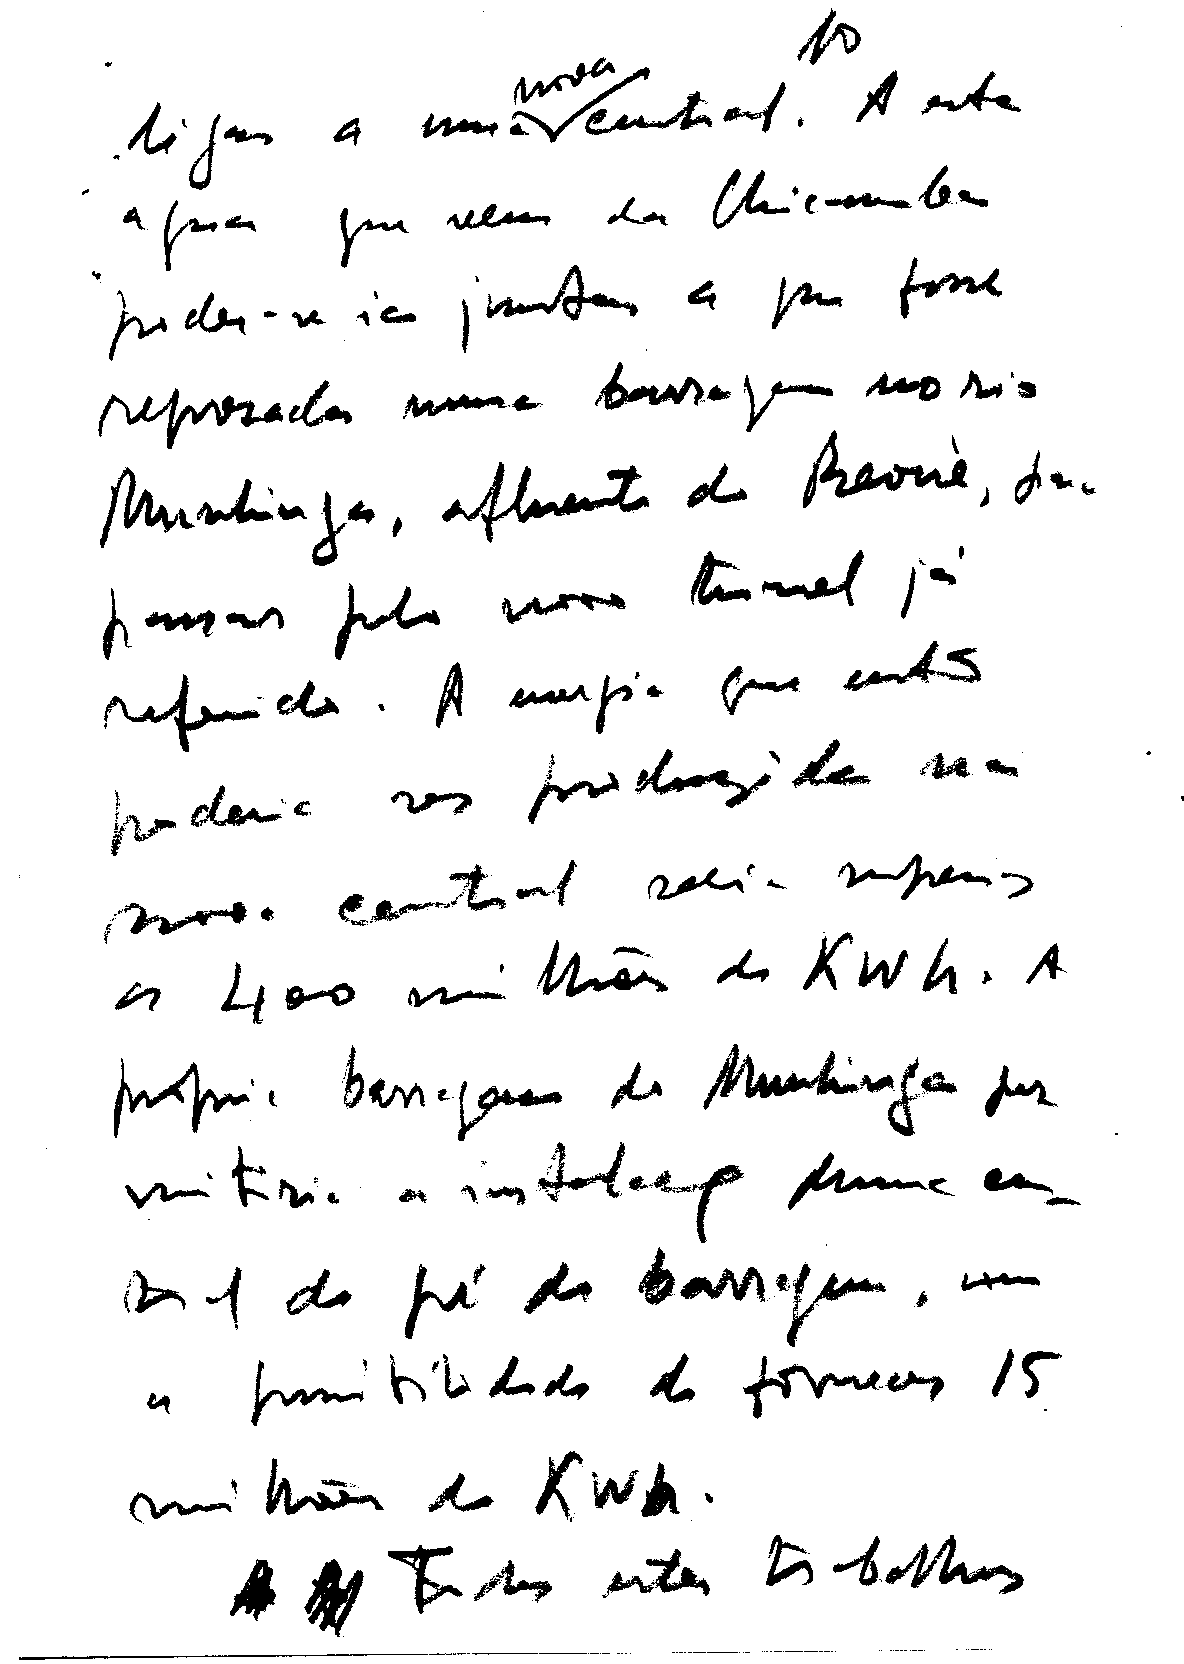 10
ligar a uma nova central. A esta
agua que vem da Chicamba
poder-se ia juntar a que fosse
represada numa barragem no rio
Munhinga, afluente do Revuè, que
passar pelo novo tunnel já
referido. A energia que então
poderia ser produzida na
nova central seria superior
a 400 milhões de KWh. A
própria barragem do Munhinga per
mitiria a instalação duma cen_
tral do pé da barragem, com
a possibilidade de fornecer 15
milhões de KWh.
Todos estes trabalhos